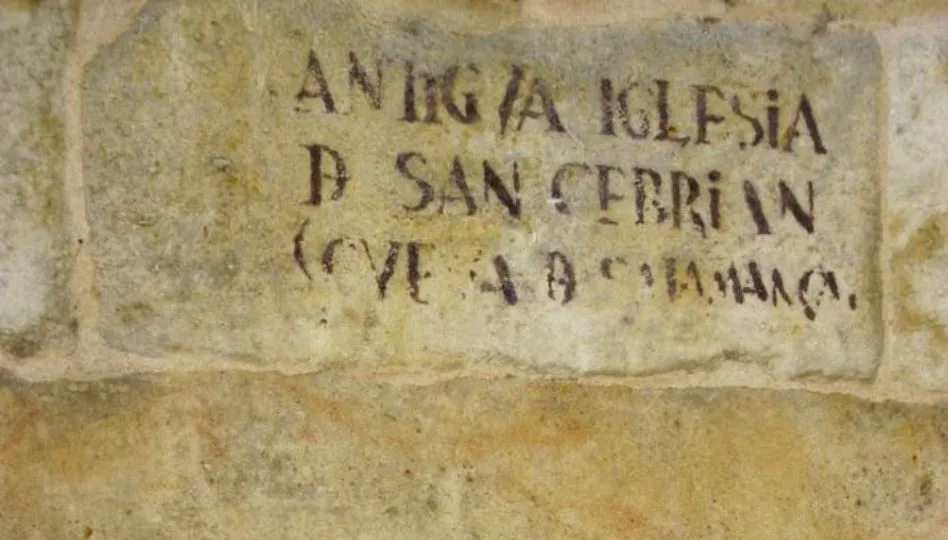 ANTIGVA IGLESIA
D SAN CEBRIAN
(CVEVA D SALAMANCA.